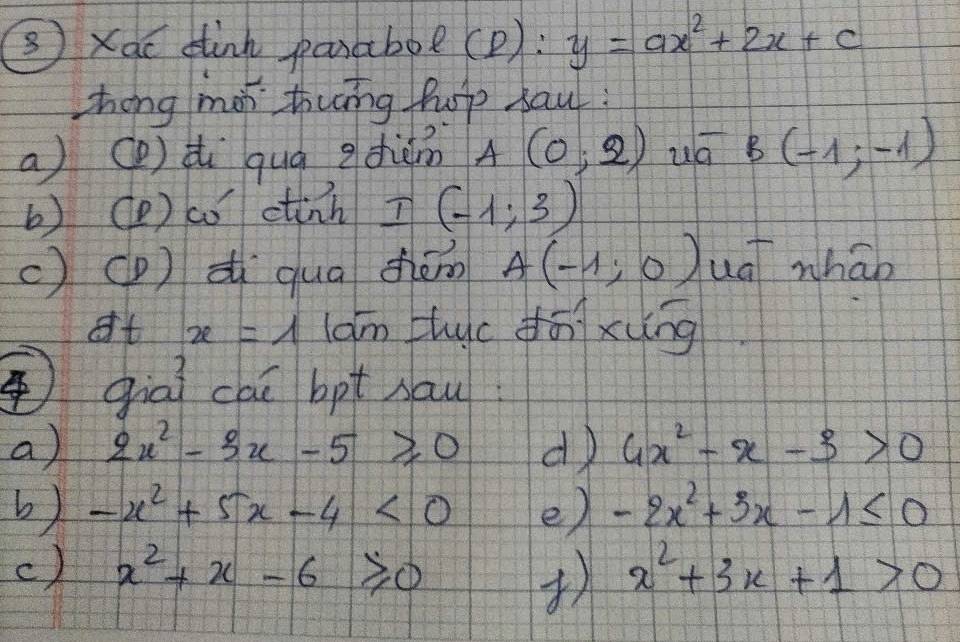 ③ Xác định parabol (P): y = ax² + 2x + c
trong mỗi trường hợp sau:
a) (P) đi qua 2 điểm A (0; 2) và B (-1; -1)
b) (P) có đỉnh I (-1; 3)
c) (P) đi qua điểm A (-1; 0) và nhận
đt x = 1 làm trục đối xứng.
④ Giải các bpt sau:
a) 2x² - 3x - 5 ≥ 0 d) 4x² - x - 3 > 0
b) -x² + 5x - 4 < 0 e) -2x² + 3x - 1 ≤ 0
c) x² + x - 6 ≥ 0 f) x² + 3x + 1 > 0